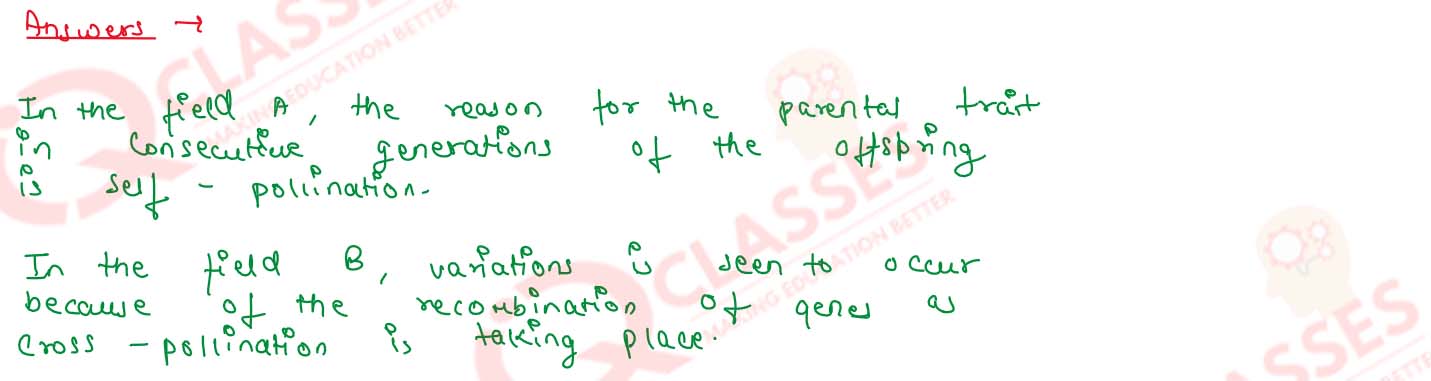 Answers →
In the field A, the reason for the parental trait
in consecutive generations of the offspring
is self - pollination.
In the field B, variations is seen to occur
because of the recombination of genes as
cross - pollination is taking place.
CLASSES
MAKING EDUCATION BETTER
CLASSES
MAKING EDUCATION BETTER
SSES